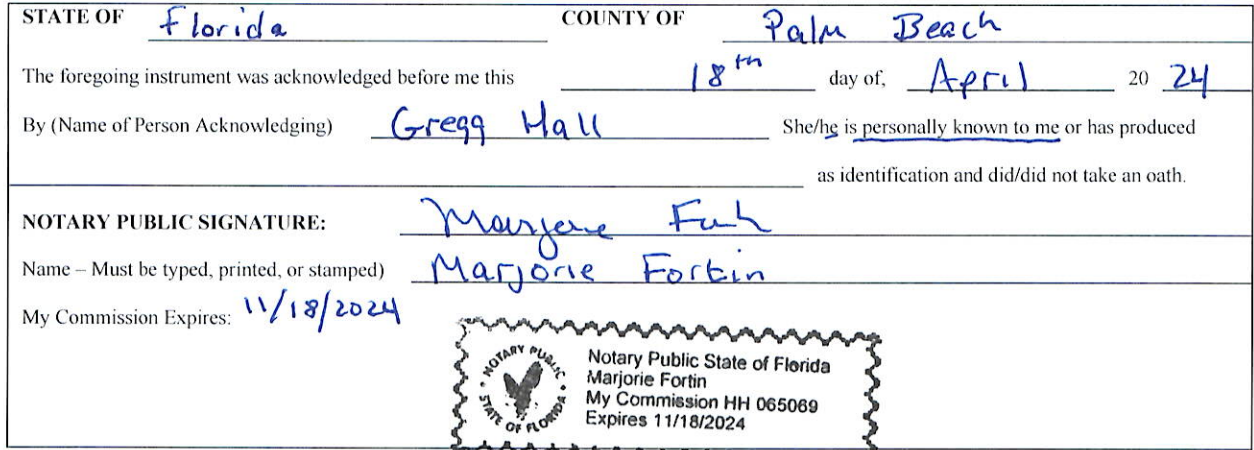 STATE OF Florida COUNTY OF Palm Beach
The foregoing instrument was acknowledged before me this 18th day of, April 20 24
By (Name of Person Acknowledging) Gregg Hall She/he is personally known to me or has produced
as identification and did/did not take an oath.
NOTARY PUBLIC SIGNATURE:
Name – Must be typed, printed, or stamped) Marjorie Fortin
My Commission Expires: 11/18/2024
NOTARY PUBLIC
STATE OF FLORIDA
Notary Public State of Florida
Marjorie Fortin
My Commission HH 065069
Expires 11/18/2024